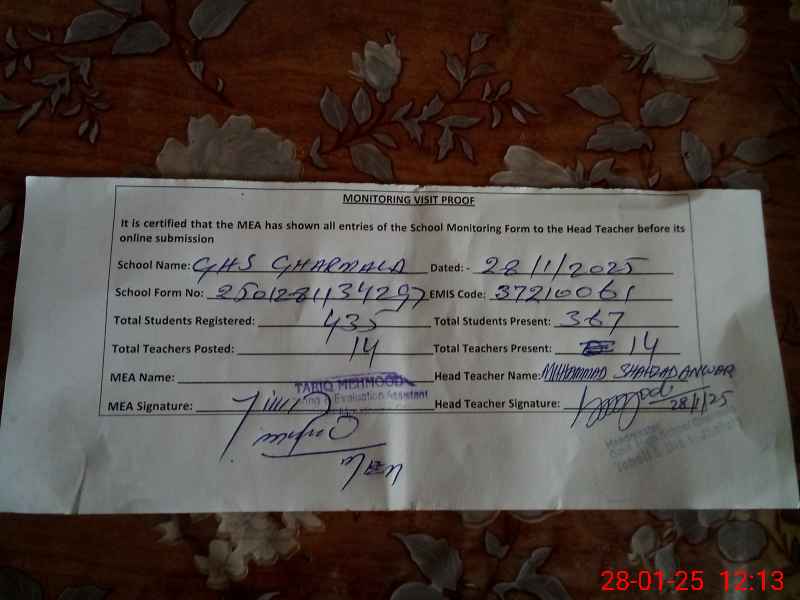 MONITORING VISIT PROOF
It is certified that the MEA has shown all entries of the School Monitoring Form to the Head Teacher before its
online submission
School Name: GHS GHARMALA Dated: - 28/1/2025
School Form No: EMIS Code: 37210061
Total Students Registered: 435 Total Students Present: 367
Total Teachers Posted: 14 Total Teachers Present: 14
MEA Name: TARIQ MEHMOOD Head Teacher Name: MUHAMMAD SHAHZAD ANWAR
Evaluation Assistant
MEA Signature: Head Teacher Signature: 28/1/25
Headmaster
28-01-25 12:13